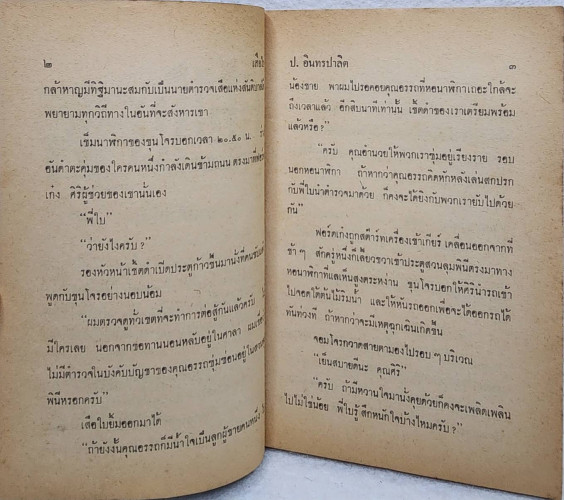 ๒
กล้าหาญมีทิฐิมานะสมกับเป็นนายตำรวจเสือแห่งสันติบาล
พยายามทุกวิถีทางในอันที่จะสังหารเขา
เข็มนาฬิกาของขุนโจรบอกเวลา ๒๐.๕๐ น.
อันดำตะคุ่มของใครคนหนึ่งกำลังเดินข้ามถนน ตรงมาที่
เก๋ง ศิริผู้ช่วยของเขานั้นเอง
"พี่ใบ"
"ว่ายังไงครับ ?"
รองหัวหน้าเช็ตดำเปิดประตูก้าวขึ้นมานั่งที่
พูดกับขุนโจรอย่างนอบน้อม
"ผมตรวจดูทั่วเขตที่จะทำการต่อสู้กันแล้วครับ
มีใครเลย นอกจากขอทานนอนหลับอยู่ในศาลา
ไม่มีตำรวจในบังคับบัญชาของคุณอรรถซุ่มซ่อนอยู่
พินีหรอกครับ"
เสือใบยิ้มออกมาได้
"ถ้ายังงั้นคุณอรรถก็มีน้ำใจเป็นลูกผู้ชายคนหนึ่ง
ป. อินทรปาลิต
๓
น้องชาย พาผมไปรอคอยคุณอรรถที่หอนาฬิกาเถอะใกล้จะ
ถึงเวลาแล้ว อีกสิบนาทีเท่านั้น เช้ตดำของเราเตรียมพร้อม
แล้วหรือ?"
"ครับ คุณอำนวยให้พวกเราซุ่มอยู่เรียงราย รอบ
นอกหอนาฬิกา ถ้าหากว่าคุณอรรถคิดหักหลังเล่นสกปรก
กับพี่ใบนำตำรวจมาด้วย ก็คงจะได้ยิงกับพวกเรายับไปด้วย
กัน"
ฟอร์ดเก๋งถูกสต๊าร์ทเครื่องเข้าเกียร์ เคลื่อนออกจากที่
ช้า ๆ สักครู่หนึ่งก็เลี้ยวขวาเข้าประตูสวนลุมพินีตรงมาทาง
หอนาฬิกาที่แลเห็นสูงตระหง่าน ขุนโจรบอกให้ศิรินำรถเข้า
ไปจอดใต้ต้นไม้ริมน้ำ และให้หันรถออกเพื่อจะได้ออกรถได้
ทันท่วงที ถ้าหากว่าจะมีเหตุฉุกเฉินเกิดขึ้น
จอมโจรกวาดสายตามองไปรอบ ๆ บริเวณ
"เย็นสบายดีนะ คุณศิริ"
"ครับ ถ้ามีหวานใจมานั่งคุยด้วยก็คงจะเพลิดเพลิน
ไปไม่ใช่น้อย พี่ใบรู้สึกหนักใจบ้างไหมครับ ?"